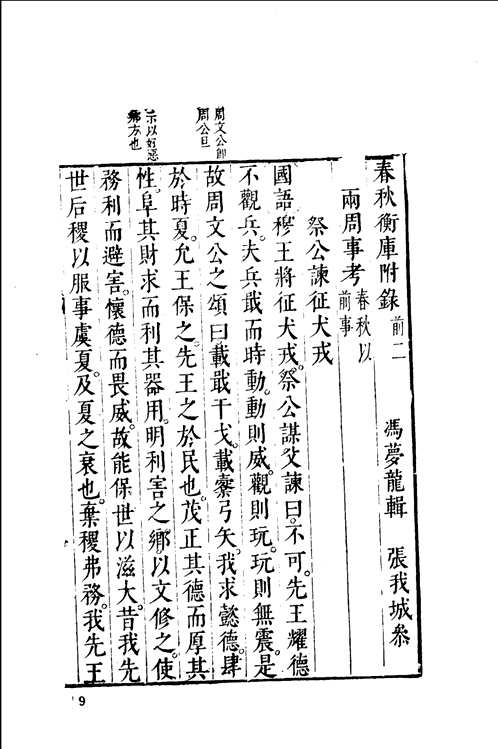 春秋衡庫附錄 前二 馮夢龍輯 張我城叅
兩周事考 春秋以前事
祭公諫征犬戎
國語穆王將征犬戎。祭公謀父諫曰。不可。先王耀德
不觀兵。夫兵戢而時動。動則威。觀則玩。玩則無震。是
故周文公之頌曰。載戢干戈。載櫜弓矢。我求懿德。肆
於時夏。允王保之。先王之於民也。茂正其德而厚其
性。阜其財求而利其器用。明利害之鄉。以文修之。使
務利而避害。懷德而畏威。故能保世以滋大。昔我先
世后稷以服事虞夏。及夏之衰也。棄稷弗務。我先王
周文公卽
周公旦
示以好惡
鄉方也
9